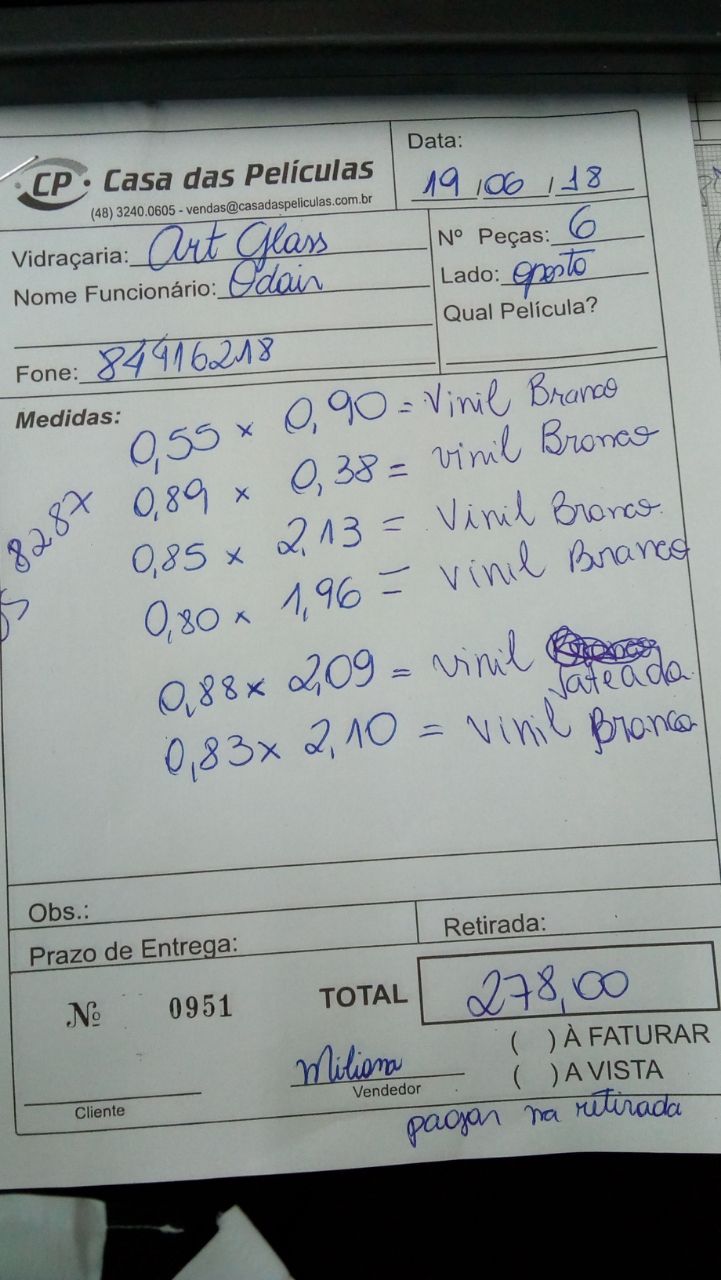 CP · Casa das Películas
(48) 3240.0605 - vendas@casadaspeliculas.com.br
Data:
19/06/18
Vidraçaria: Art Glass
Nome Funcionário: Odair
Fone: 84416218
Nº Peças: 6
Lado: oposto
Qual Película?
Medidas:
0,55 x 0,90 = Vinil Branco
0,89 x 0,38 = vinil Branco
0,85 x 2,13 = Vinil Branco.
0,80 x 1,96 = Vinil Branco
0,88 x 2,09 = vinil Jateado.
0,83 x 2,10 = Vinil Branco
8287
Obs.:
Prazo de Entrega:
Retirada:
Nº 0951
TOTAL 278,00
( ) À FATURAR
( ) A VISTA
Miliana
Vendedor
Cliente
pagar na retirada